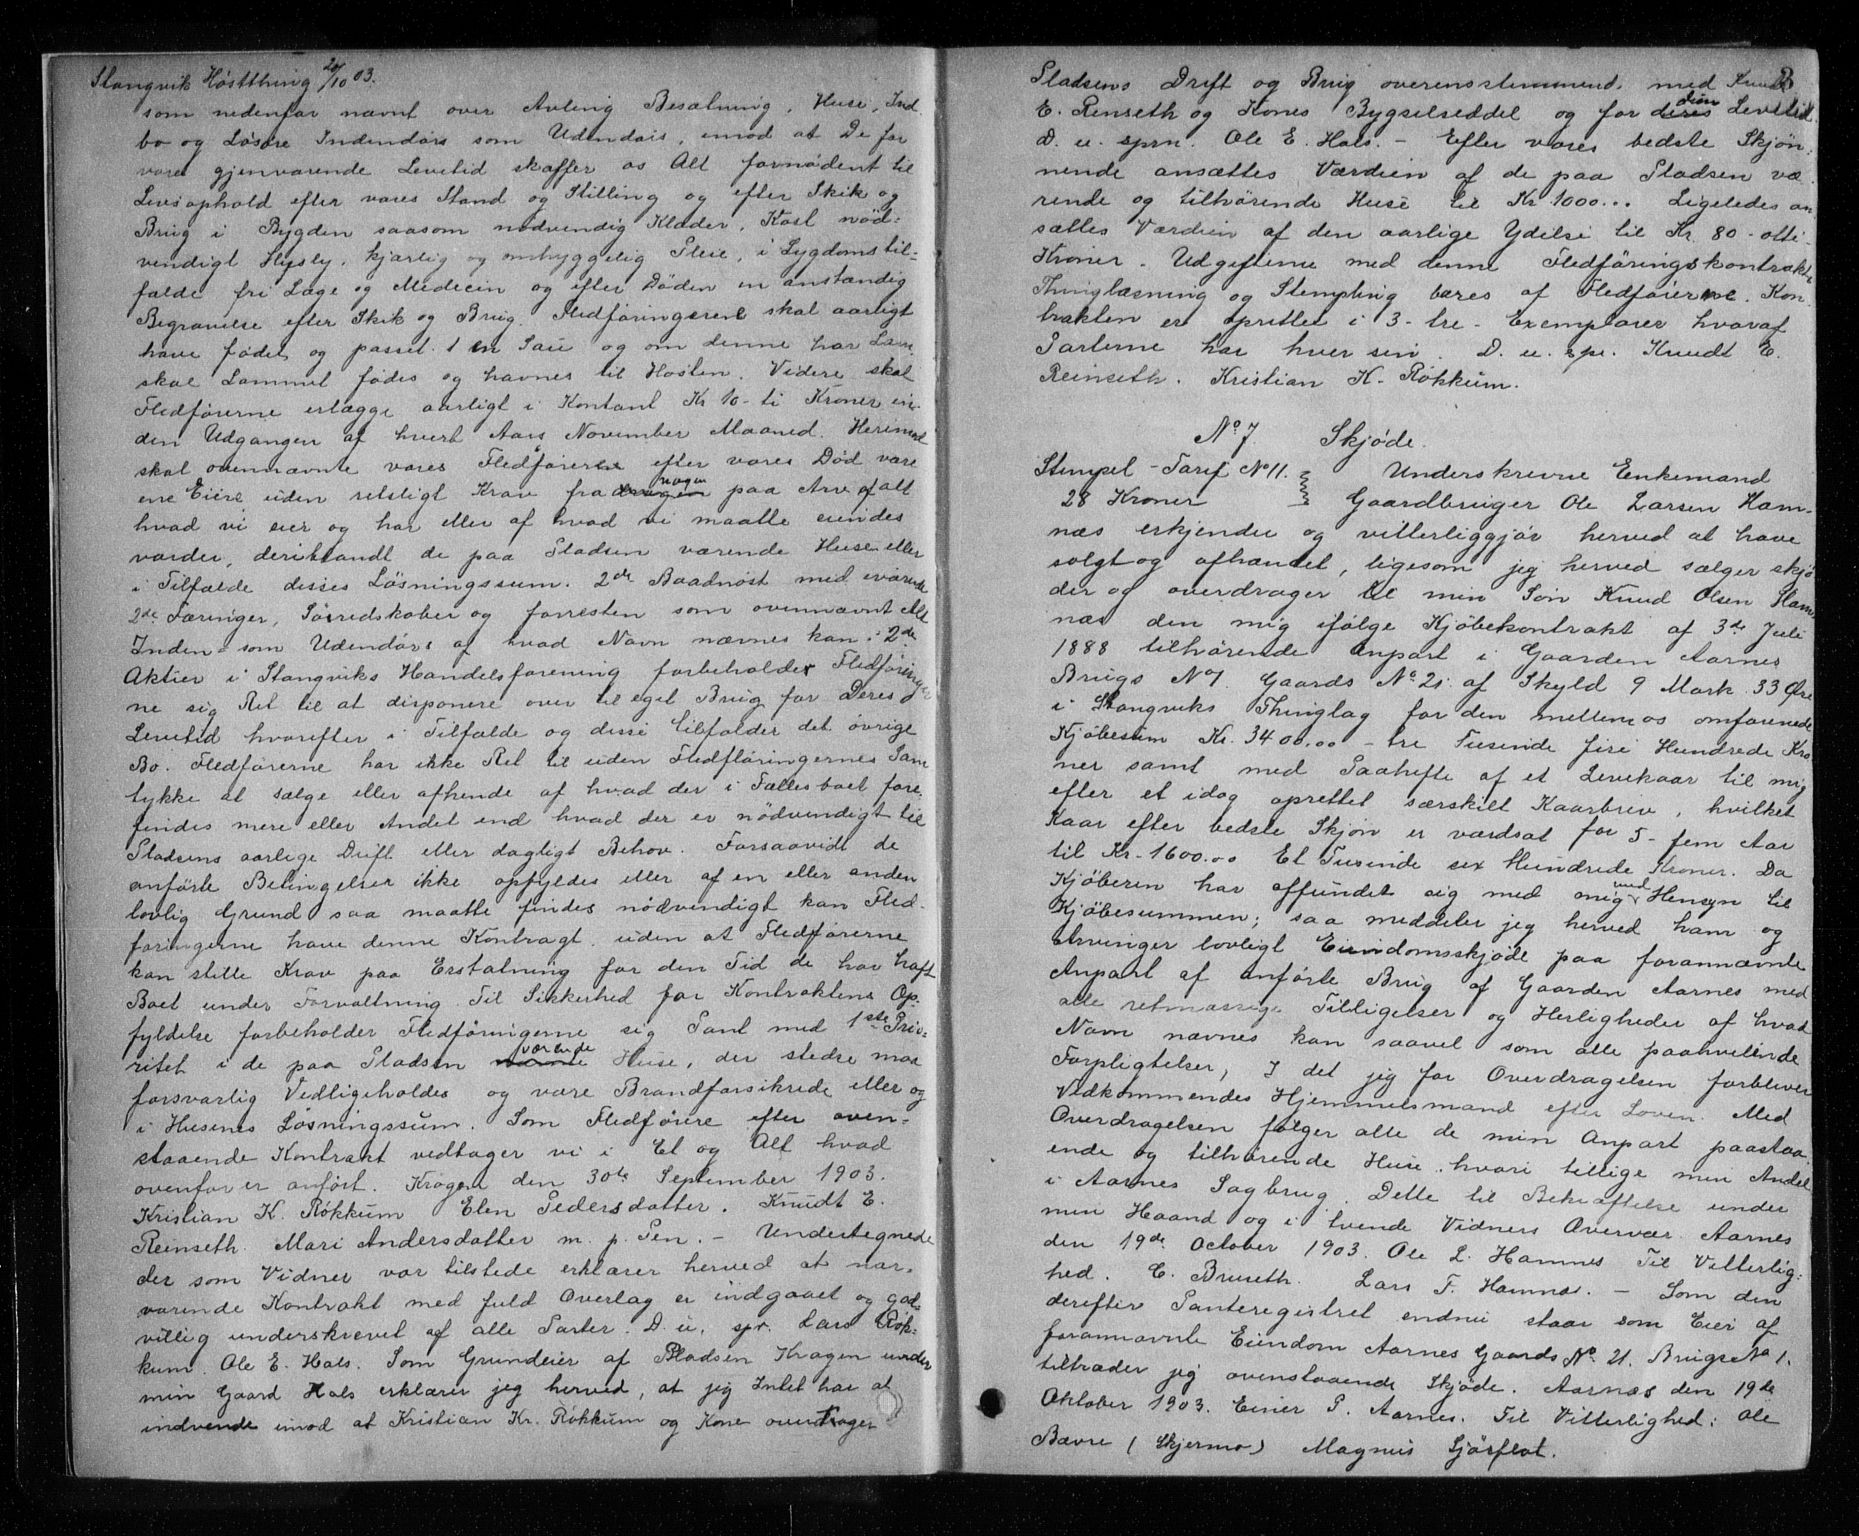 Stangvik Høstthing 20/10 03.
som nedenfor nævnt over Avling Besætning, Huse, Ind
bo og Løsøre Indendørs som Udendørs, imod at De for
vore gjenværende Levetid skaffer os Alt fornødent til
Livsophold efter vores Stand og Stilling og efter Skik og
Brug i Bygden saasom nødvendig Klæder, Kost nød-
vendigt Husly, kjærlig og omhyggelig Pleie, i Sygdomstil-
fælde fri Læge og Medecin og efter Døden en anstændig
Begravelse efter Skik og Brug. Fledføringerene skal aarligt
have fødet og passet 1 en Sau og om denne har Lam
skal Lammet fødes og havnes til Høsten. Videre skal
Fledførerne erlægge aarligt i Kontant Kr 10 - ti Kroner in-
den Udgangen af hvert Aars November Maaned. Herimod
skal ovennævnte vores Fledførere efter vores Død være
ene Eiere uden retsligt Krav fra nogen paa Arv af alt
hvad vi eier og har eller af hvad vi maatte eiendes
vorder, deriblandt de paa Pladsen værende Huse eller
i Tilfælde disses Løsningssum. 2de Baadnøst med iværende
2de Færinger, Søredskaber og forresten som ovennævnt Alt
Inden- som Udendørs af hvad Navn nævnes kan. 2de
Aktier i Stangviks Handelsforening forbeholder Fledføringer
ne sig Ret til at disponere over til eget Brug for Deres
Levetid hvorefter i Tilfælde og disse tilfalder det øvrige
Bo. Fledførerne har ikke Ret til uden Fledføringernes Sam
tykke at sælge eller afhende af hvad der i Fællesboet fore
findes mere eller Andet end hvad der er nødvendigt til
Pladsens aarlige Drift eller dagligt Behov. Forsaavidt de
anførte Betingelser ikke opfyldes eller af en eller anden
lovlig Grund saa maatte findes nødvendigt kan Fled-
føringerne hæve denne Kontragt uden at Fledførerne
kan stille Krav paa Erstatning for den Tid de har haft
Boet under Forvaltning. Til Sikkerhed for Kontraktens Op-
fyldelse forbeholder Fledføringerne sig Pant med 1ste Prio-
ritet i de paa Pladsen værende Huse, der stedse maa
forsvarlig Vedligeholdes og være Brandforsikrede eller og
i Husenes Løsningssum. Som Fledførere efter oven-
staaende Kontrakt vedtager vi i Et og Alt hvad
ovenfor er anført. Kragen den 30te September 1903.
Kristian K. Røkkum Elen Pedersdatter. Knudt E.
Reinseth. Mari Andersdatter m. p. Pen. - Undertegnede
der som Vidner var tilstede erklærer herved at nær-
værende Kontrakt med fuld Overlæg er indgaaet og god-
villig underskrevet af alle Parter. D. u. spr. Lars Røk-
kum. Ole E. Hals. Som Grundeier af Pladsen Kragen under
min Gaard Hals erklærer jeg herved, at jeg Intet har at
indvende imod at Kristian Kr. Røkkum og Kone overtager
Pladsens Drift og Brug overensstemmende med Knudt
E. Reinseth og Kones Bygselseddel og for deres Levetid
D. u. sprn. Ole E. Hals. - Efter vores bedste Skjøn-
nende ansættes Værdien af de paa Pladsen væ-
rende og tilhørende Huse til Kr 1000... Ligeledes an
sættes Værdien af den aarlige Ydelse til Kr. 80 - otti -
Kroner. Udgifterne med denne Fledføringskontrakts
Thinglæsning og Stempling bæres af Fledførerne. Kon-
trakten er oprettet i 3 - tre - Exemplarer hvoraf
Parterne har hver sin. D. u. spr. Knudt E.
Reinseth. Kristian K. Røkkum.
No 7. Skjøde.
Stempel - Tarif No 11. Underskrevne Enkemand
28 Kroner Gaardbruger Ole Larsen Ham-
næs erkjender og vitterliggjør herved at have
solgt og afhændet, ligesom jeg herved sælger skjø-
der og overdrager til min Søn Knud Olsen Ham
næs den mig ifølge Kjøbekontrakt af 3de Juli
1888 tilhørende Anpart i Gaarden Aarnes
Brugs No 1. Gaards No 21. af Skyld 9 Mark 33 Øre
i Stangviks Thinglag for den mellem os omforenede
Kjøbesum Kr. 3400,00 - tre Tusinde fire Hundrede Kro
ner samt med Paahefte af et Levekaar til mig
efter et idag oprettet særskilt Kaarbrev, hvilket
Kaar efter bedste Skjøn er værdsat for 5 - fem Aar
til Kr. 1600.00 Et Tusinde sex Hundrede Kroner. Da
Kjøberen har affundet sig med mig med Hensyn til
Kjøbesummen; saa meddeler jeg herved ham og
Arvinger lovligt Eiendomsskjøde paa forannævnte
Anpart af anførte Brug af Gaarden Aarnes med
alle retmæssige Tilligelser og Herligheder af hvad
Navn nævnes kan saavel som alle paahvilende
Forpligtelser, I det jeg for Overdragelsen forbliver
Vedkommendes Hjemmelsmand efter Loven. Med
Overdragelsen følger alle de min Anpart paastaa
ende og tilhørende Huse, hvori tillige min Andel
i Aarnes Sagbrug. Dette til Bekræftelse under
min Haand og i tvende Vidners Overvær. Aarnes
den 19de October 1903. Ole L. Hamnes Til Vitterlig-
hed. E. Bruseth. Lars T. Hamnes. - Som den
derefter Panteregistret endnu staar som Eier af
forannævnte Eiendom Aarnes Gaards No. 21. Brugs No 1.
tiltræder jeg ovenstaaende Skjøde. Aarnæs den 19de
Oktober 1903. Einer P. Aarnes. Til Vitterlighed: Ole
Bævre (Skjermo) Magnus Sjøsflot.